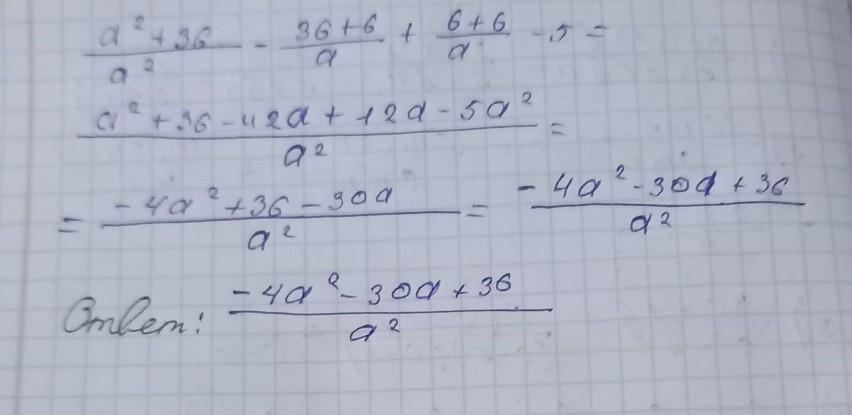 (a² + 36)/a² - (36+6)/a + (6+6)/a - 5 =
(a² + 36 - 42a + 12a - 5a²)/a² =
= (-4a² + 36 - 30a)/a² = (-4a² - 30a + 36)/a²
Ответ: (-4a² - 30a + 36)/a²